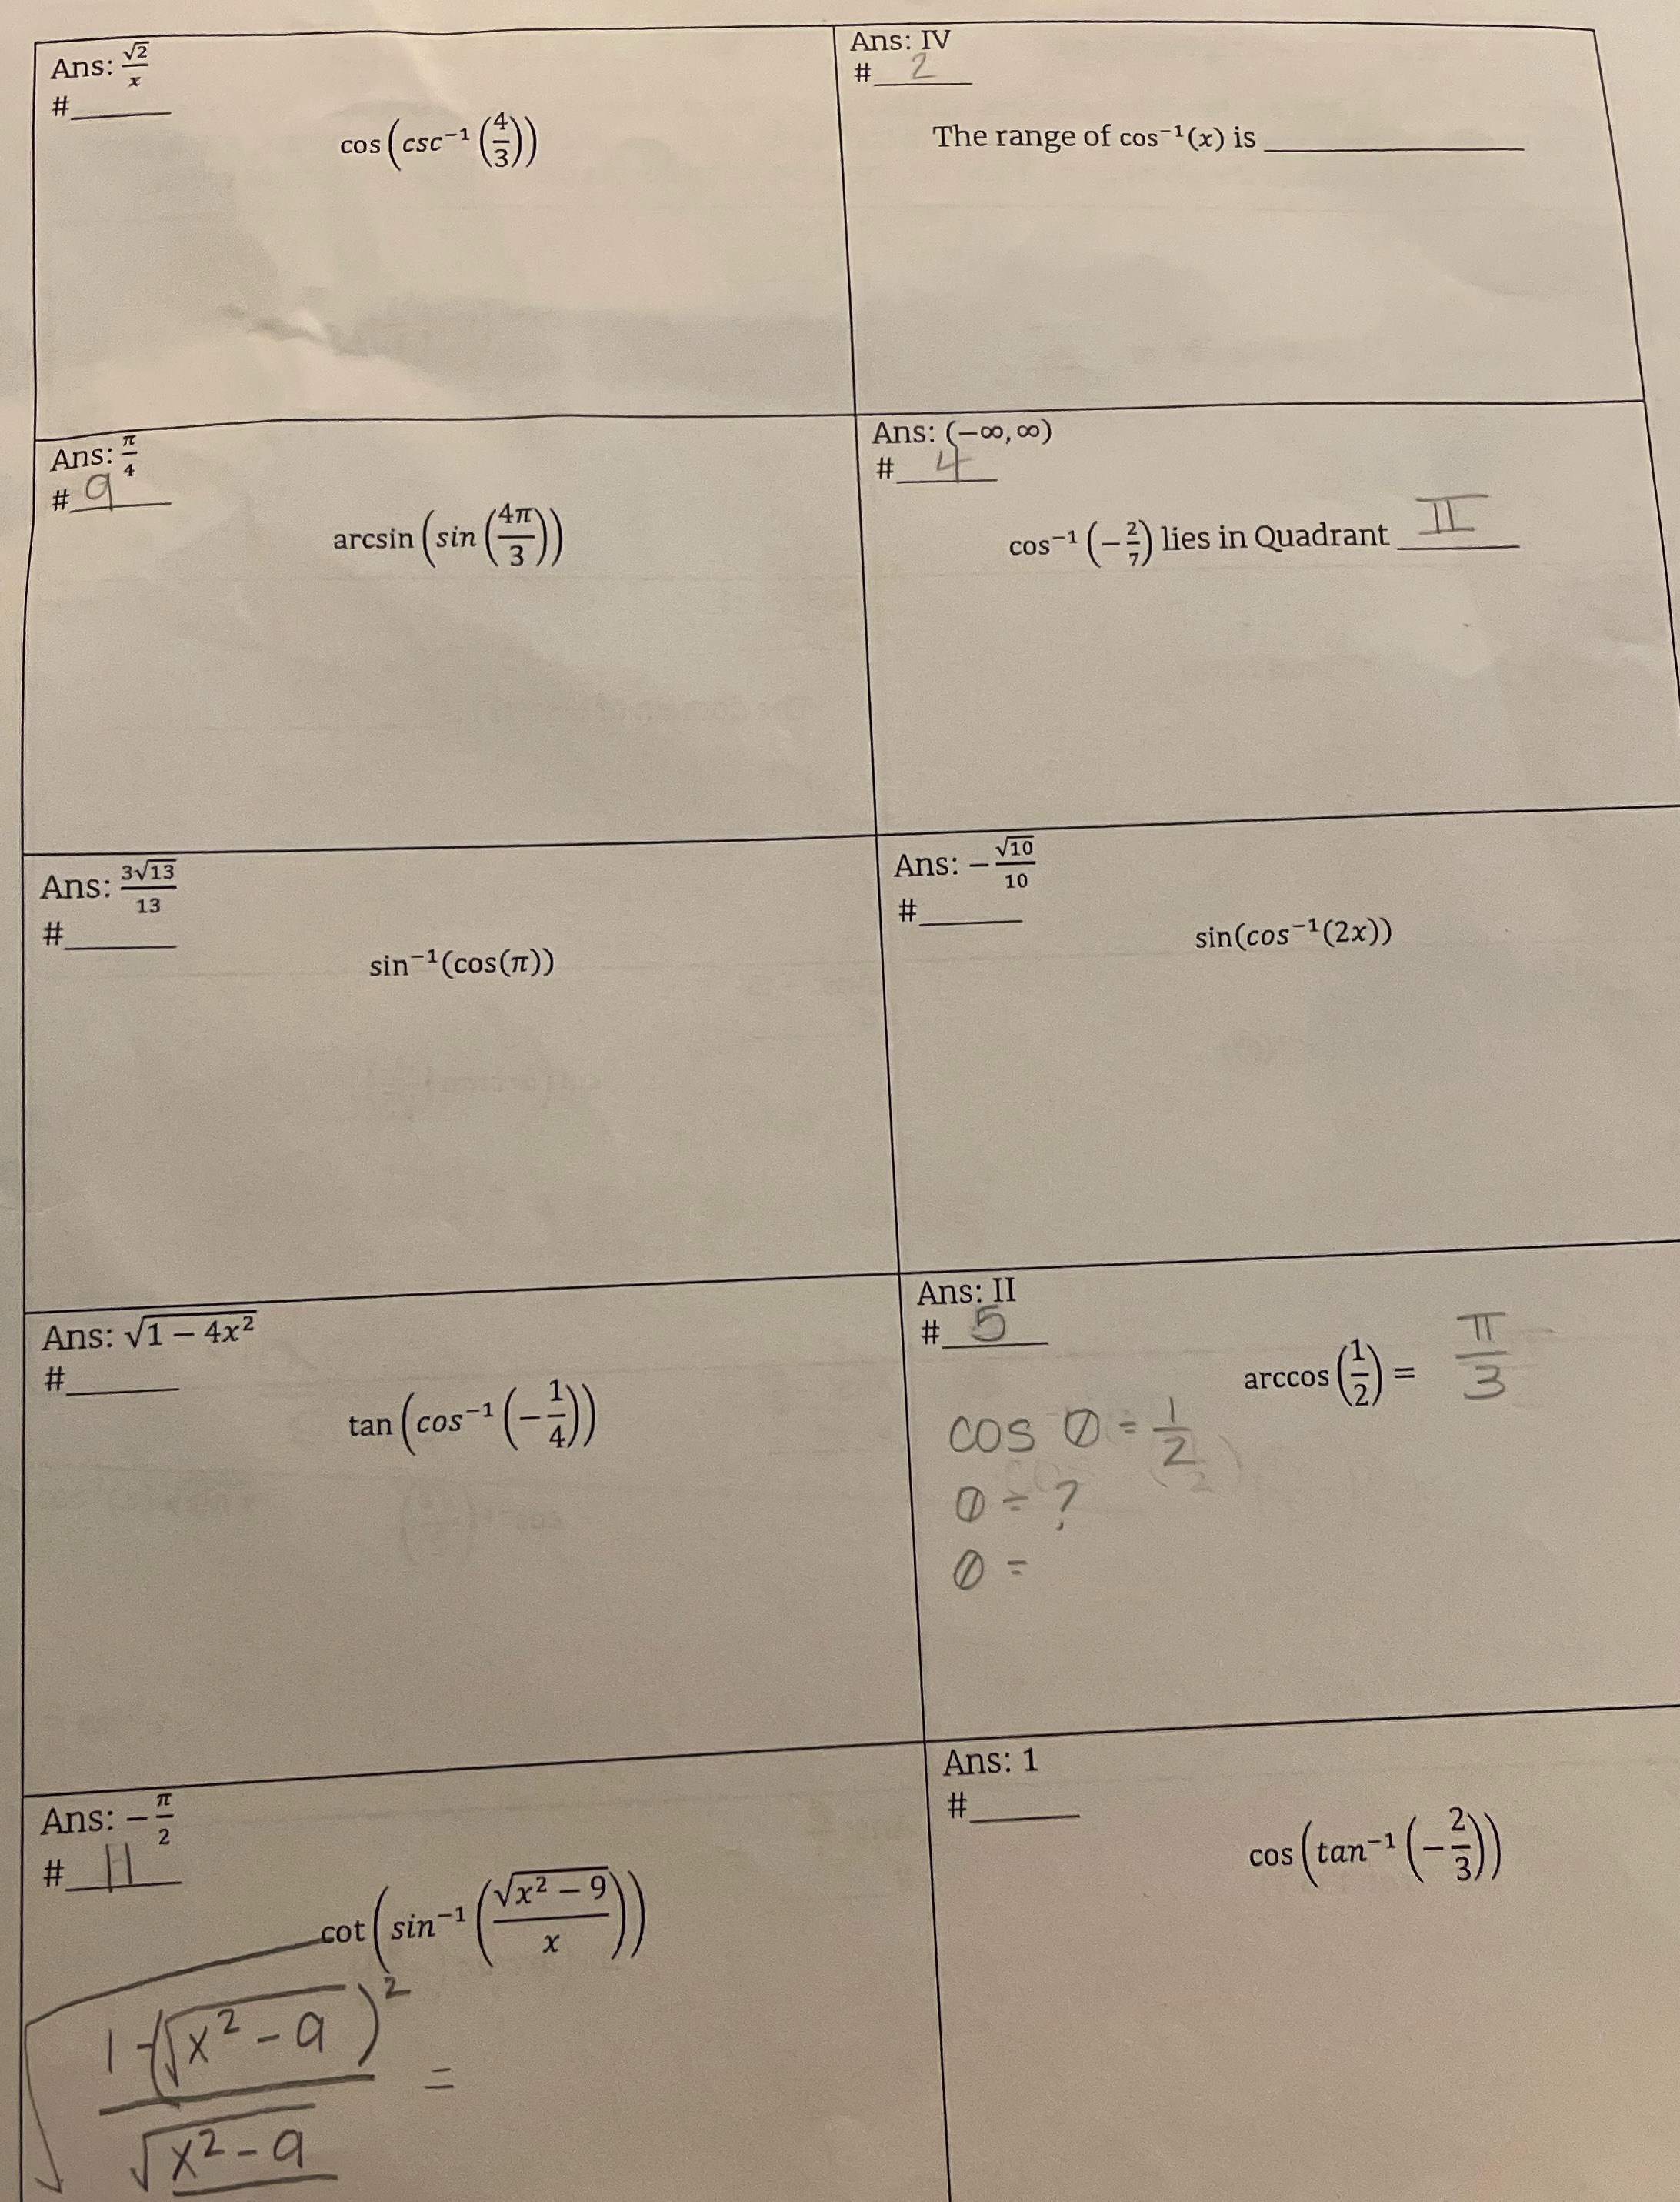 Ans: √2/x
#______
cos(csc⁻¹(4/3))
Ans: IV
# 2
The range of cos⁻¹(x) is ______________
Ans: π/4
# 9
arcsin(sin(4π/3))
Ans: (−∞, ∞)
# 4
cos⁻¹(−2/7) lies in Quadrant II
Ans: 3√13/13
#______
sin⁻¹(cos(π))
Ans: −√10/10
#______
sin(cos⁻¹(2x))
Ans: √(1 − 4x²)
#______
tan(cos⁻¹(−1/4))
Ans: II
# 5
arccos(1/2) = π/3
cos θ = 1/2
θ = ?
θ =
Ans: −π/2
# 11
cot(sin⁻¹(√(x² − 9)/x))
1-(√(x² - 9))² / √(x² - 9) =
Ans: 1
#______
cos(tan⁻¹(−2/3))